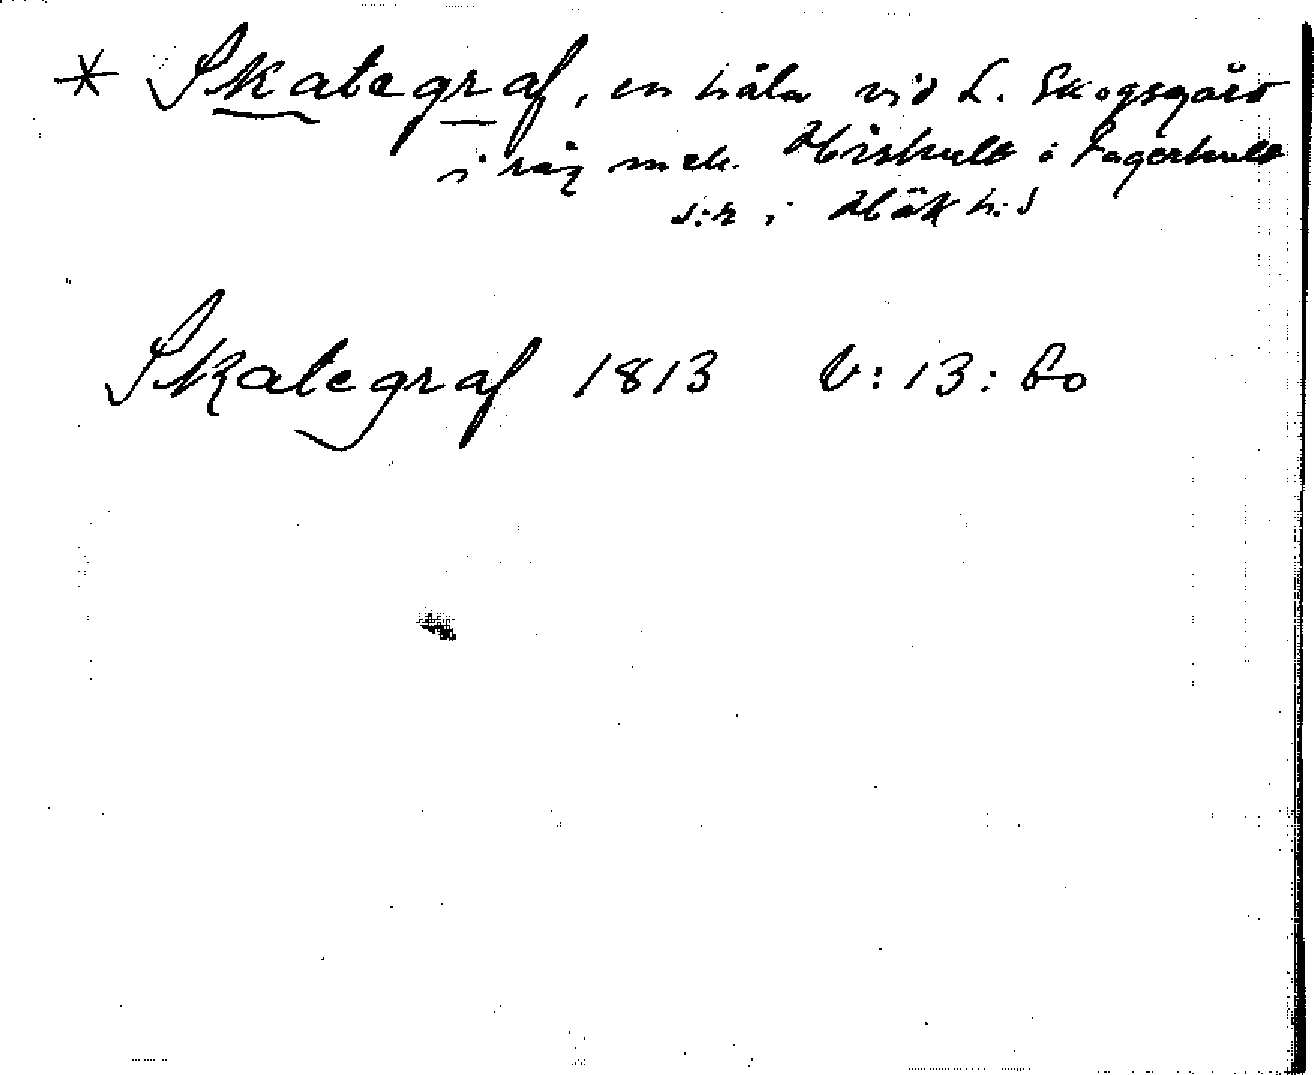 * Skategraf, en håla vid L. Skogsgård
i råg mel. Hishult o Fagerhult
s:r i Hök h:d
Skategraf 1813 b: 13: 60